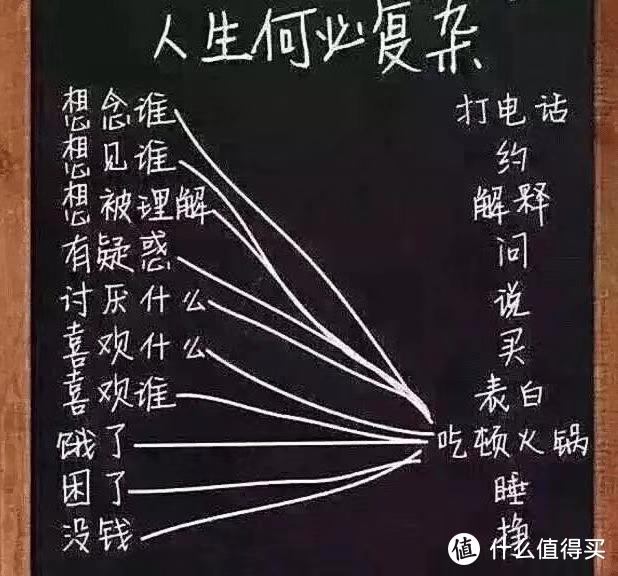 人生何必复杂
想念谁 打电话
想见谁 约
想被理解 解释
有疑惑 问
讨厌什么 说
喜欢什么 买
喜欢谁 表白
饿了 吃顿火锅
困了 睡
没钱 挣
值 什么值得买